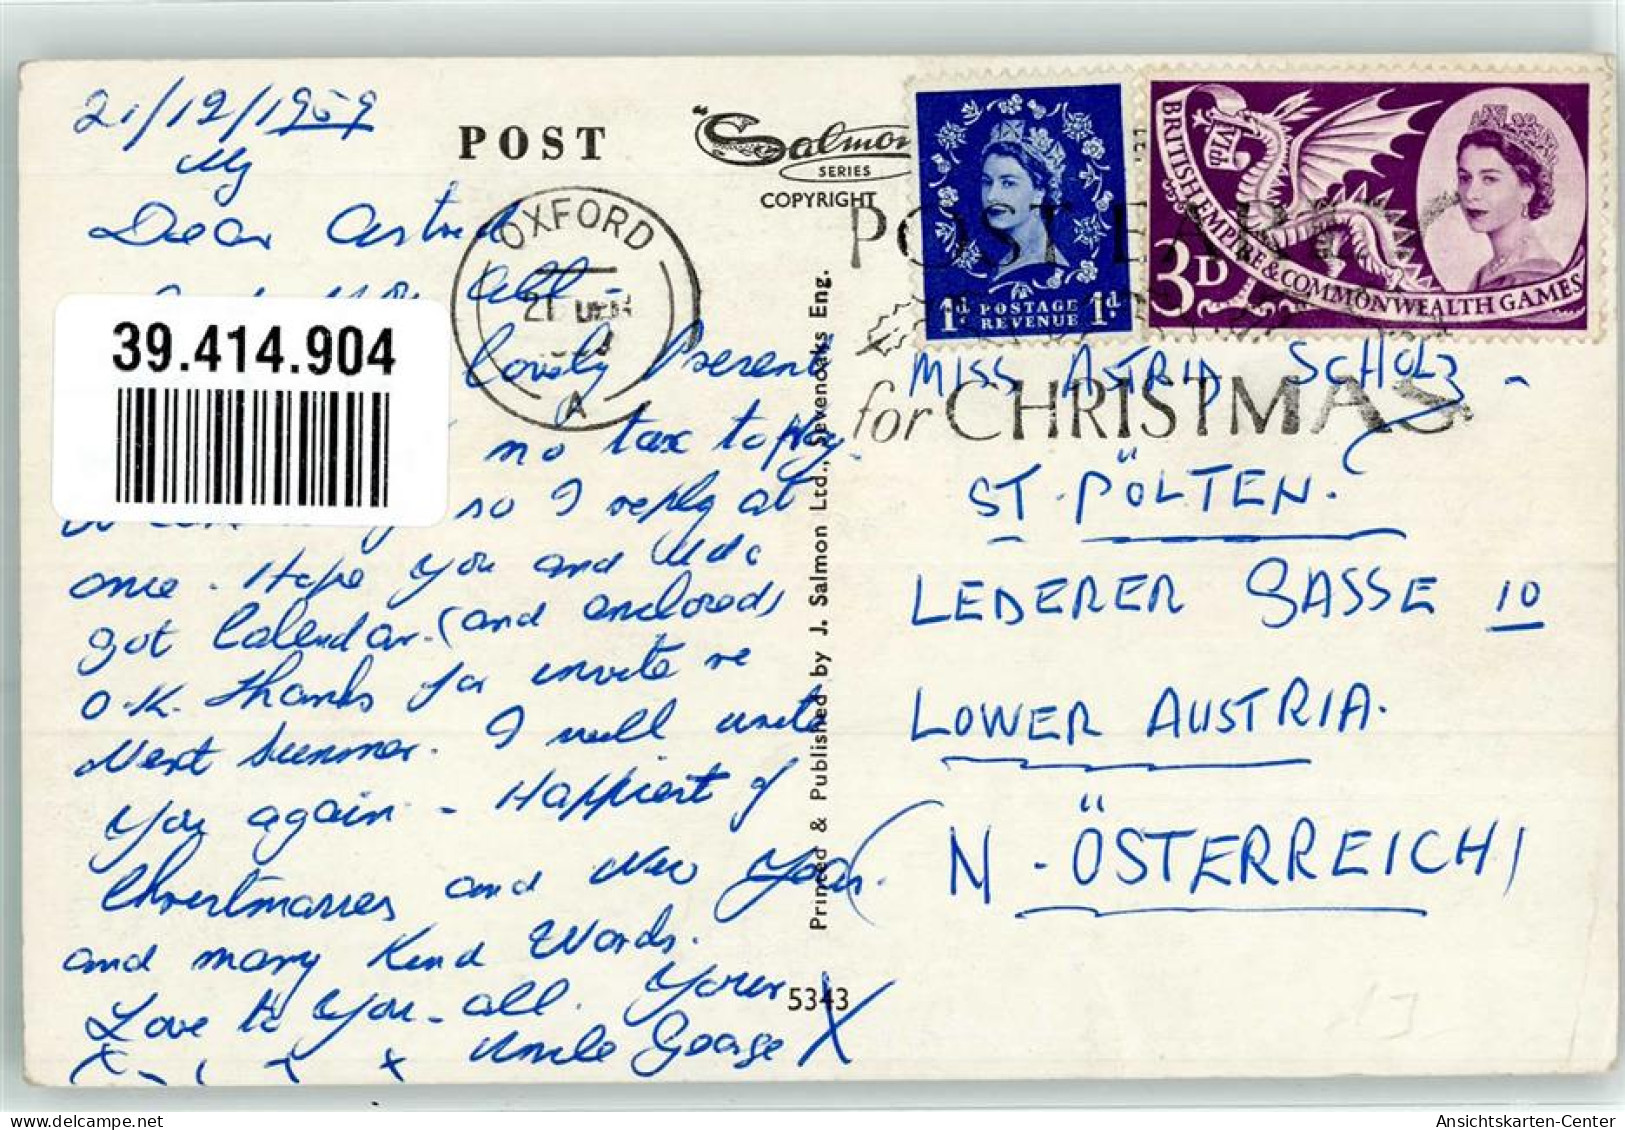 21/12/1959
My
Dear Astrid
all -
lovely Present
no tax to pay.
so I reply at
once. Hope you and
got Calendar. (and enclosed)
O.K. Thanks for invite re
Next Summer. I will write
You again - Happiest of
Christmasses and New Year.
and many Kind Words.
Love to You - all. Yours
Uncle George X
39.414.904
POST
Salmon
SERIES
COPYRIGHT
OXFORD
21 DEC
A
POST EARLY
for CHRISTMAS
1d POSTAGE REVENUE 1d
VIth
BRITISH EMPIRE & COMMONWEALTH GAMES
3D
Printed & Published by J. Salmon Ltd., Sevenoaks Eng.
5343
MISS ASTRID SCHOLZ -
ST. PÖLTEN.
LEDERER GASSE 10
LOWER AUSTRIA.
N - ÖSTERREICH
www.ansichtskartenversand.com
Ansichtskarten-Center